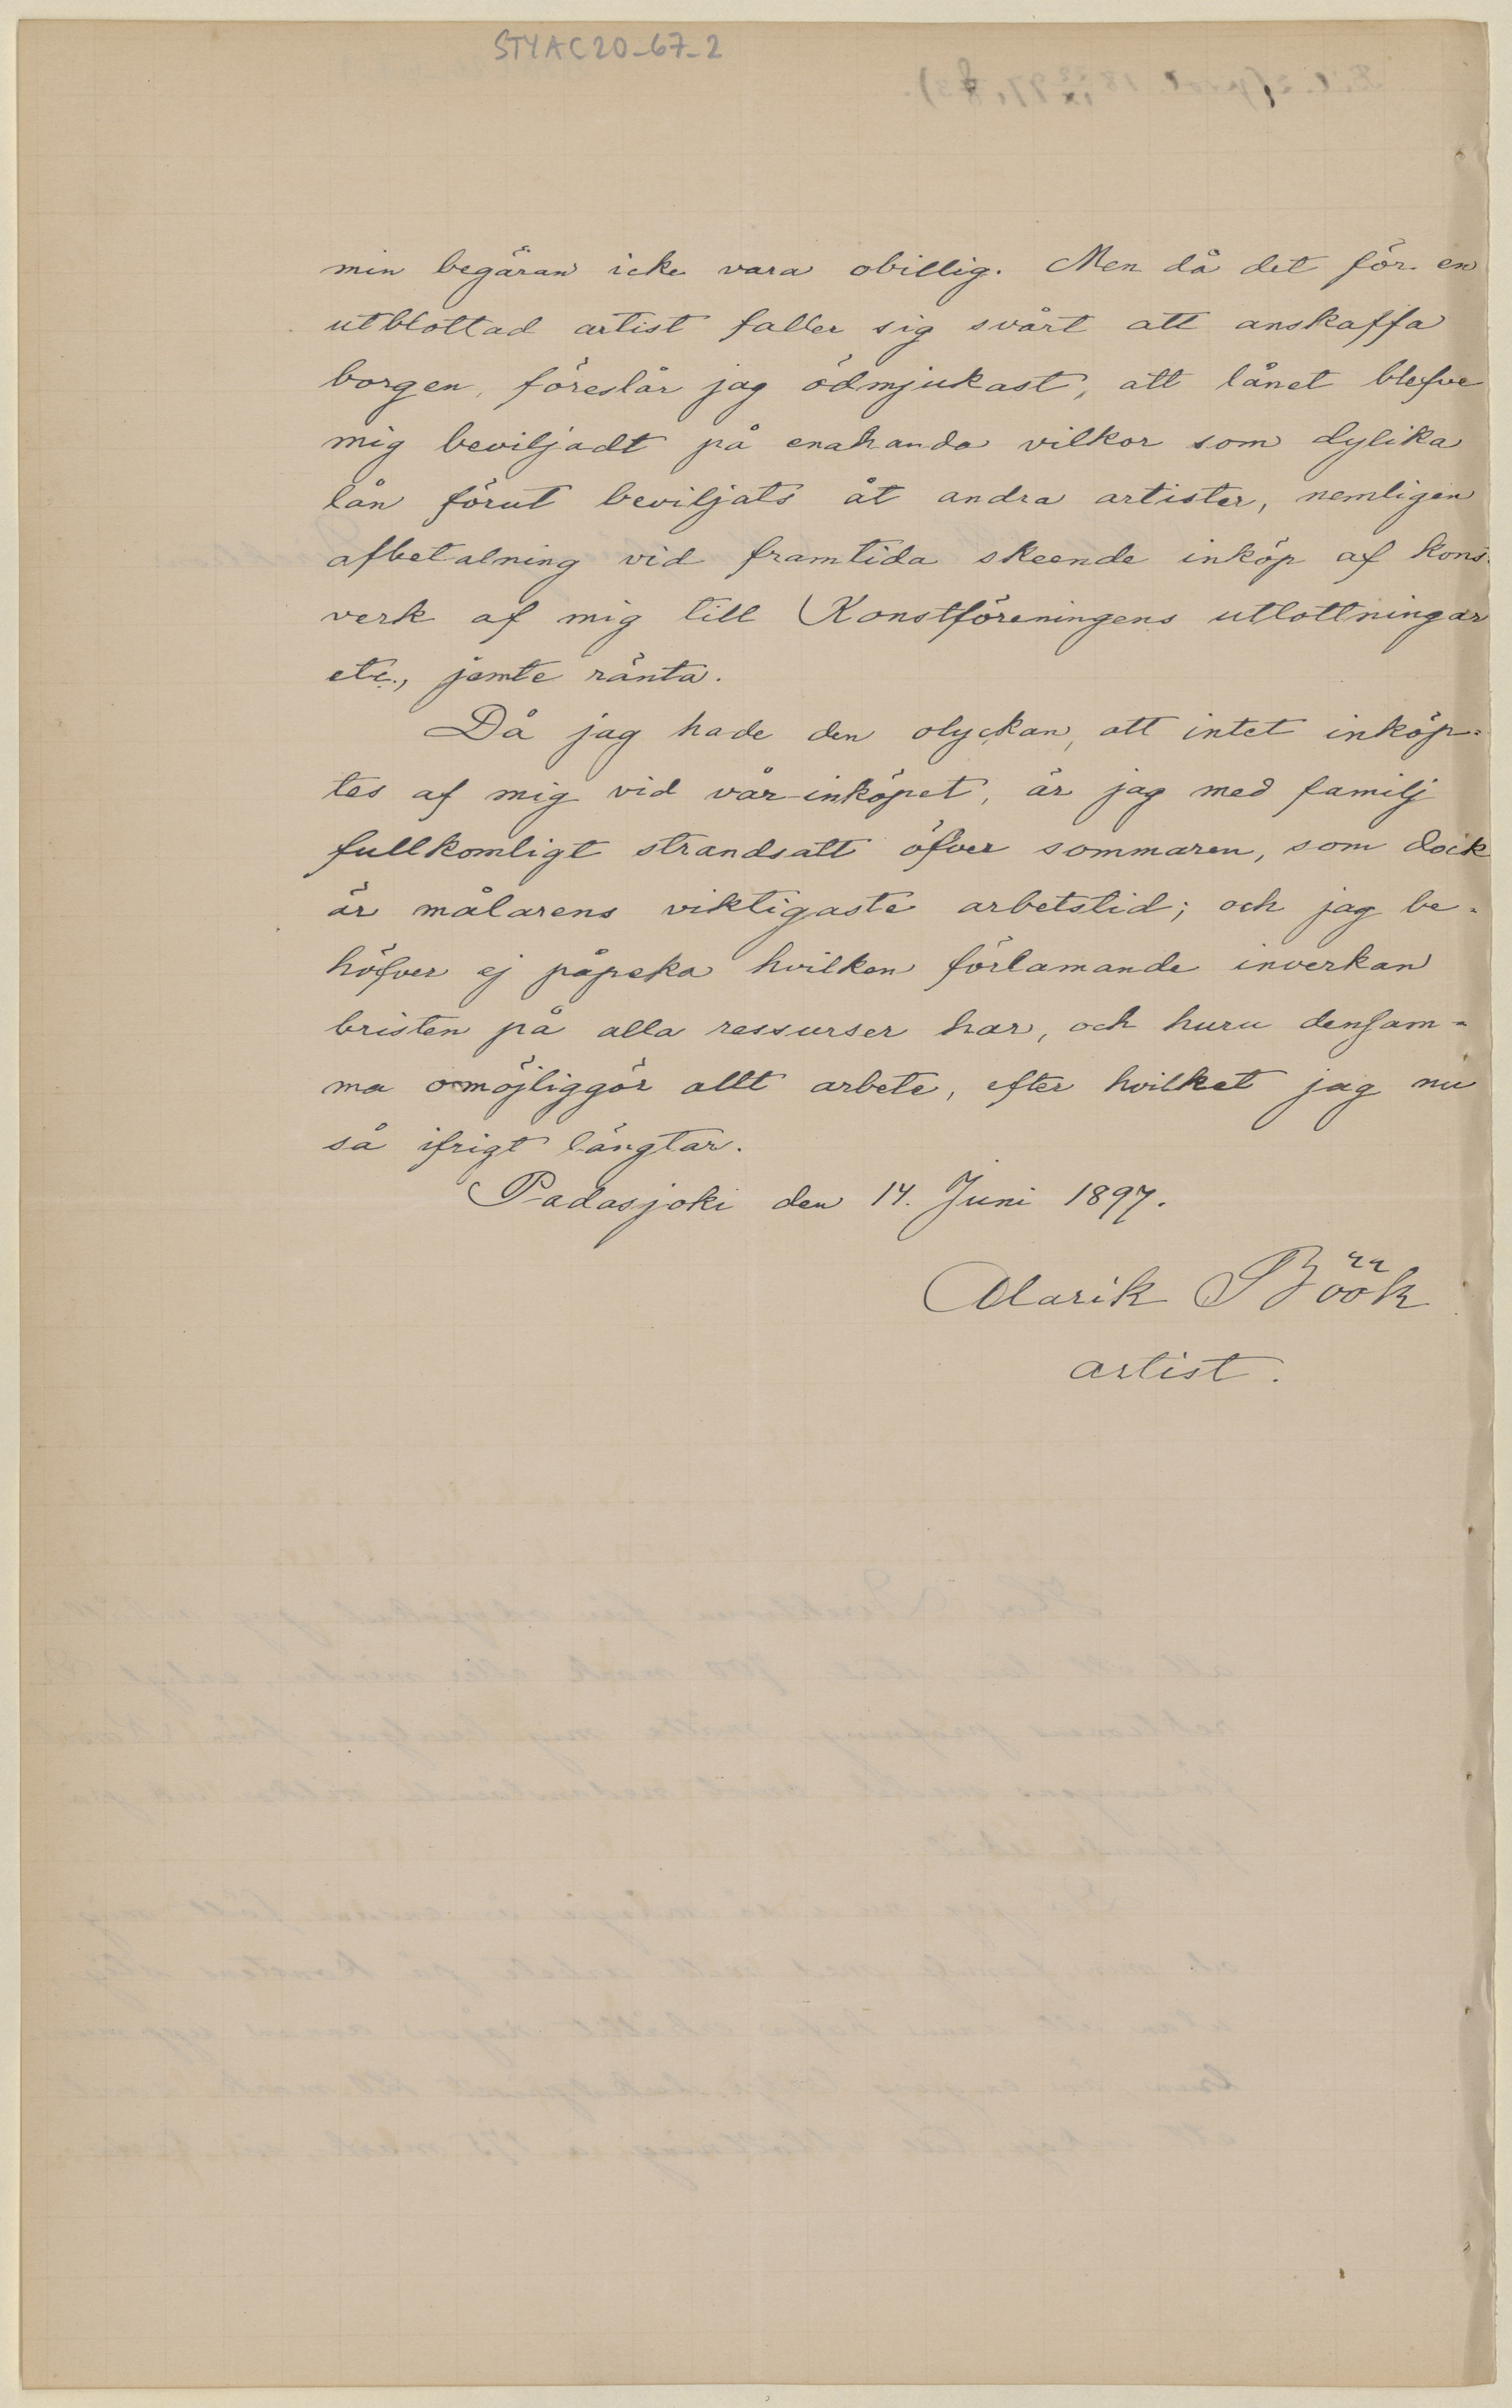 STYAC20-67-2
min begäran icke vara obillig. Men då det för en
utblottad artist faller sig svårt att anskaffa
borgen, föreslår jag ödmjukast, att lånet blefve
mig beviljadt på enahanda vilkor som dylika
lån förut beviljats åt andra artister, nemligen
afbetalning vid framtida skeende inköp af kons
verk af mig till Konstföreningens utlottningar
etc., jemte ränta.
Då jag hade den olyckan, att intet inköp-
tes af mig vid vår-inköpet, är jag med familj
fullkomligt strandsatt öfver sommaren, som dock
är målarens viktigaste arbetstid; och jag be-
höfver ej påpeka hvilken förlamande inverkan
bristen på alla ressurser har, och huru densam-
ma omöjliggör allt arbete, efter hvilket jag nu
så ifrigt längtar.
Padasjoki den 14. Juni 1897.
Alarik Böök
artist.